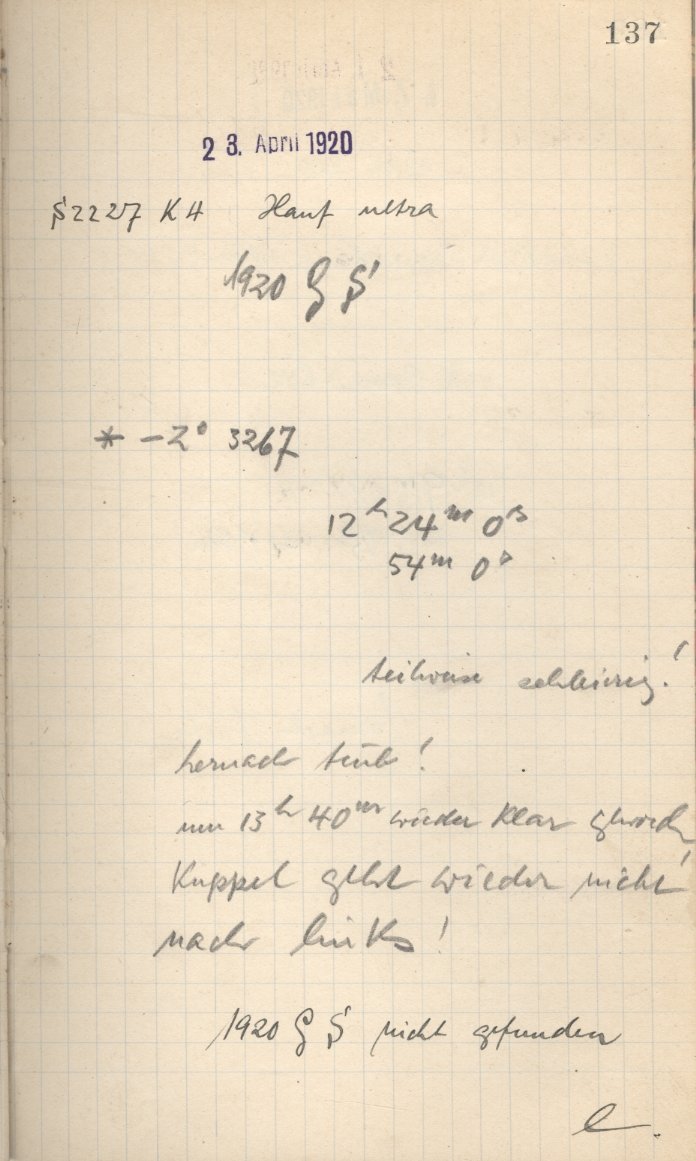 137
23. April 1920
S2227 KH Hauf ultra
1920
* -2° 3267
12h 24m 0s
54m 0s
teilweise schleirig!
hernach trüb!
um 13h 40m wieder klar geworden
Kuppel geht wieder nicht
nach links!
1920 nicht gefunden